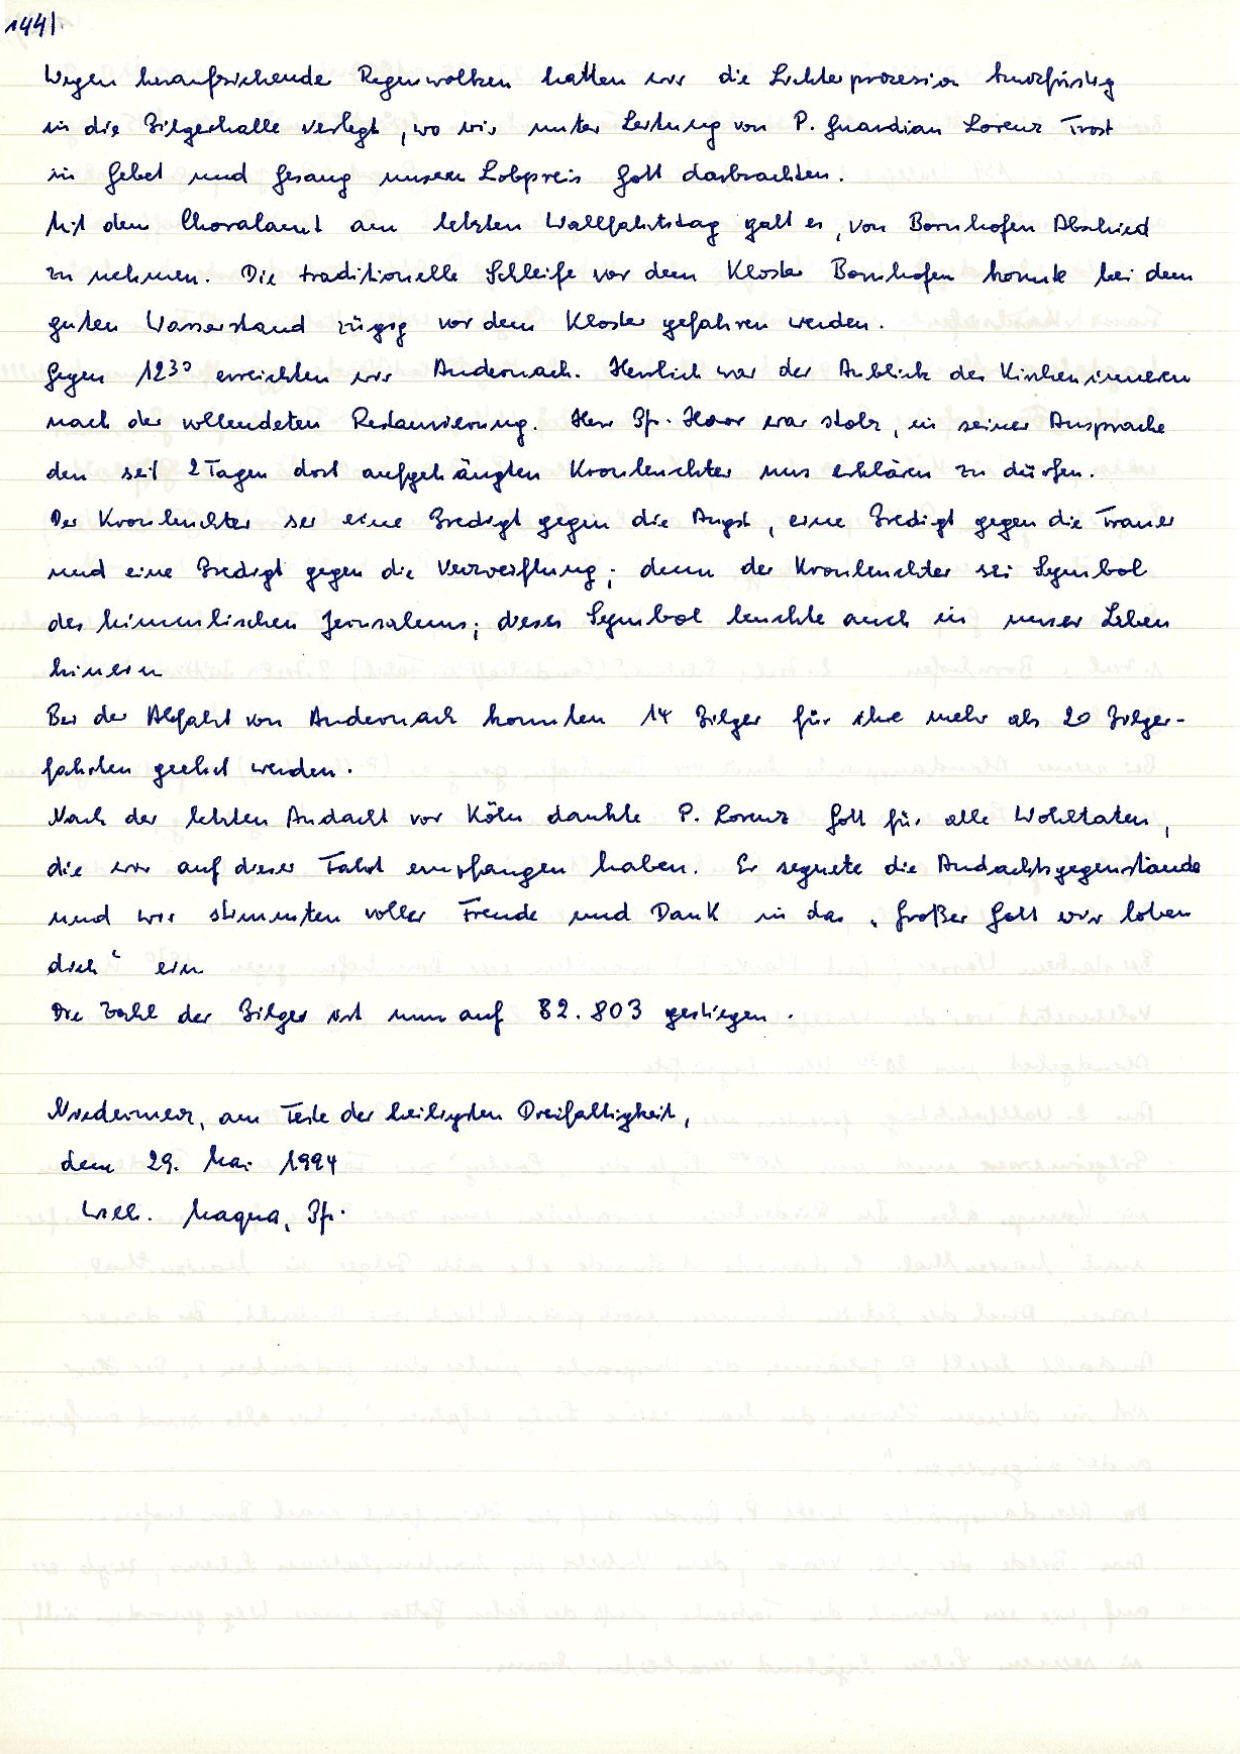 144/.
Wegen heraufziehender Regenwolken hatten wir die Lichterprozession kurzfristig
in die Pilgerhalle verlegt, wo wir unter Leitung von P. Guardian Lorenz Trost
in Gebet und Gesang unseren Lobpreis Gott darbrachten.
Mit dem Choralamt am letzten Wallfahrtstag galt es, von Bornhofen Abschied
zu nehmen. Die traditionelle Schleife vor dem Kloster Bornhofen konnte bei dem
guten Wasserstand zügig vor dem Kloster gefahren werden.
Gegen 12³⁰ erreichten wir Andernach. Herrlich war der Anblick des Kircheninneren
nach der vollendeten Restaurierung. Herr Pf. Haor war stolz, in seiner Ansprache
den seit 2 Tagen dort aufgehängten Kronleuchter uns erklären zu dürfen.
Der Kronleuchter sei eine Predigt gegen die Angst, eine Predigt gegen die Trauer
und eine Predigt gegen die Verzweiflung; denn der Kronleuchter sei Symbol
des himmlischen Jerusalems; dieses Symbol leuchte auch in unser Leben
hinein
Bei der Abfahrt von Andernach konnten 14 Pilger für ihre mehr als 20 Pilger-
fahrten geehrt werden.
Nach der letzten Andacht vor Köln dankte P. Lorenz Gott für alle Wohltaten,
die wir auf dieser Fahrt empfangen haben. Er segnete die Andachtsgegenstände
und wir stimmten voller Freude und Dank in das „Großer Gott wir loben
dich" ein
Die Zahl der Pilger ist nun auf 82.803 gestiegen.
Niedermerz, am Feste der heiligsten Dreifaltigkeit,
dem 29. Mai 1994
Wilh. Maqua, Pf.